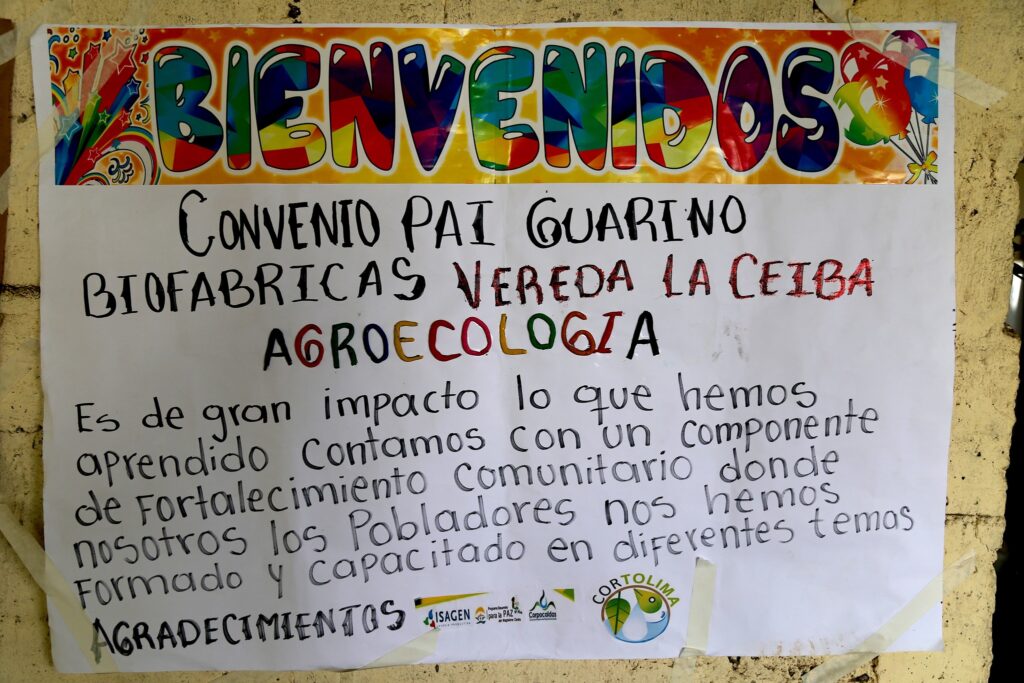 BIENVENIDOS
CONVENIO PAI GUARINO
BIOFABRICAS VEREDA LA CEIBA
AGROECOLOGIA
Es de gran impacto lo que hemos
aprendido contamos con un componente
de Fortalecimiento comunitario donde
nosotros los Pobladores nos hemos
Formado y capacitado en diferentes temos
AGRADECIMIENTOS
ISAGEN
para la PAZ
Corpocaldas
CORTOLIMA